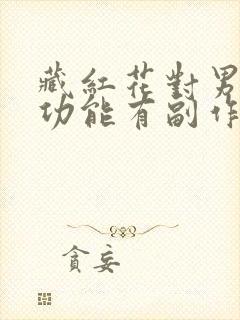 藏紅花對男
功能有副作
貪妄